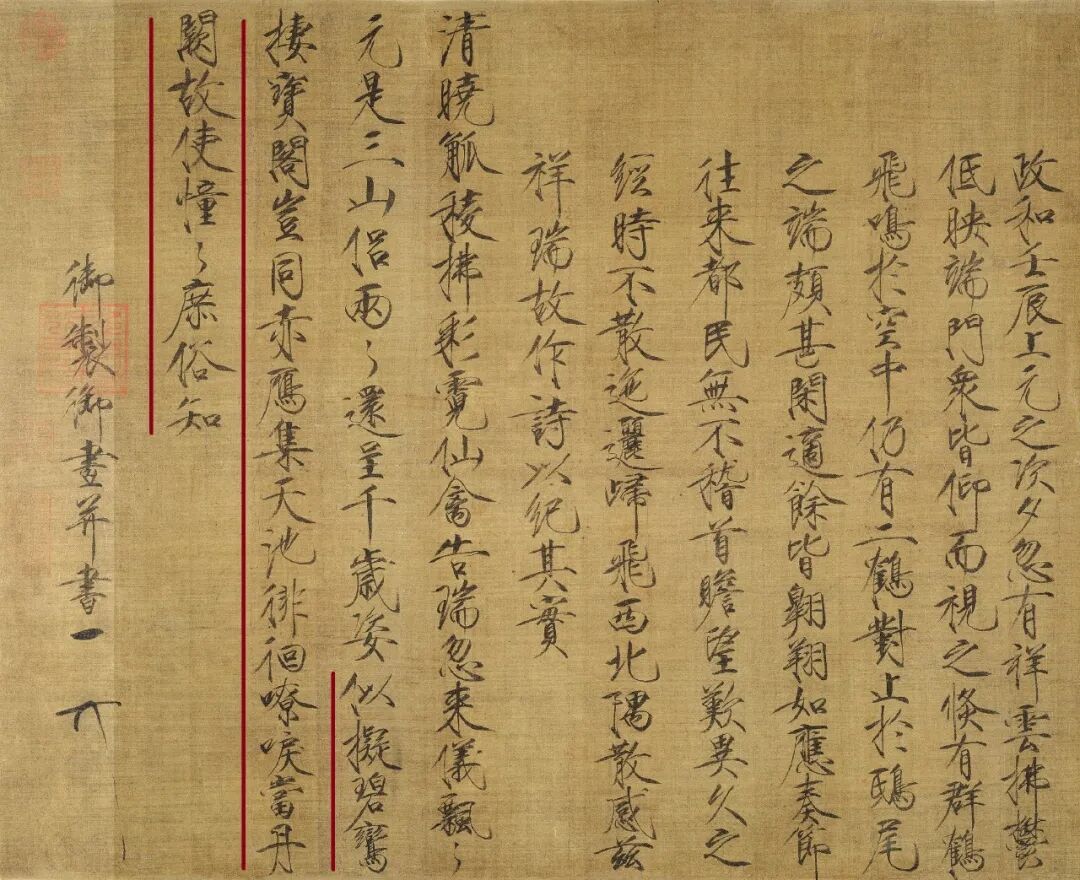 政和壬辰上元之次夕忽有祥雲拂欝
低映端門衆皆仰而視之倐有群鶴
飛鳴於空中仍有二鶴對止於鴟尾
之端頗甚閑適餘皆翺翔如應奏節
往来都民無不稽首瞻望歎異久之
經時不散迤邐歸飛西北隅散感茲
祥瑞故作詩以紀其實
清曉觚稜拂彩霓仙禽告瑞忽来儀飄〻
元是三山侣兩〻還呈千歲姿似擬碧鸞
棲寶閣豈同赤鴈集天池徘徊嘹唳當丹
闕故使憧〻庶俗知
御製御畫并書